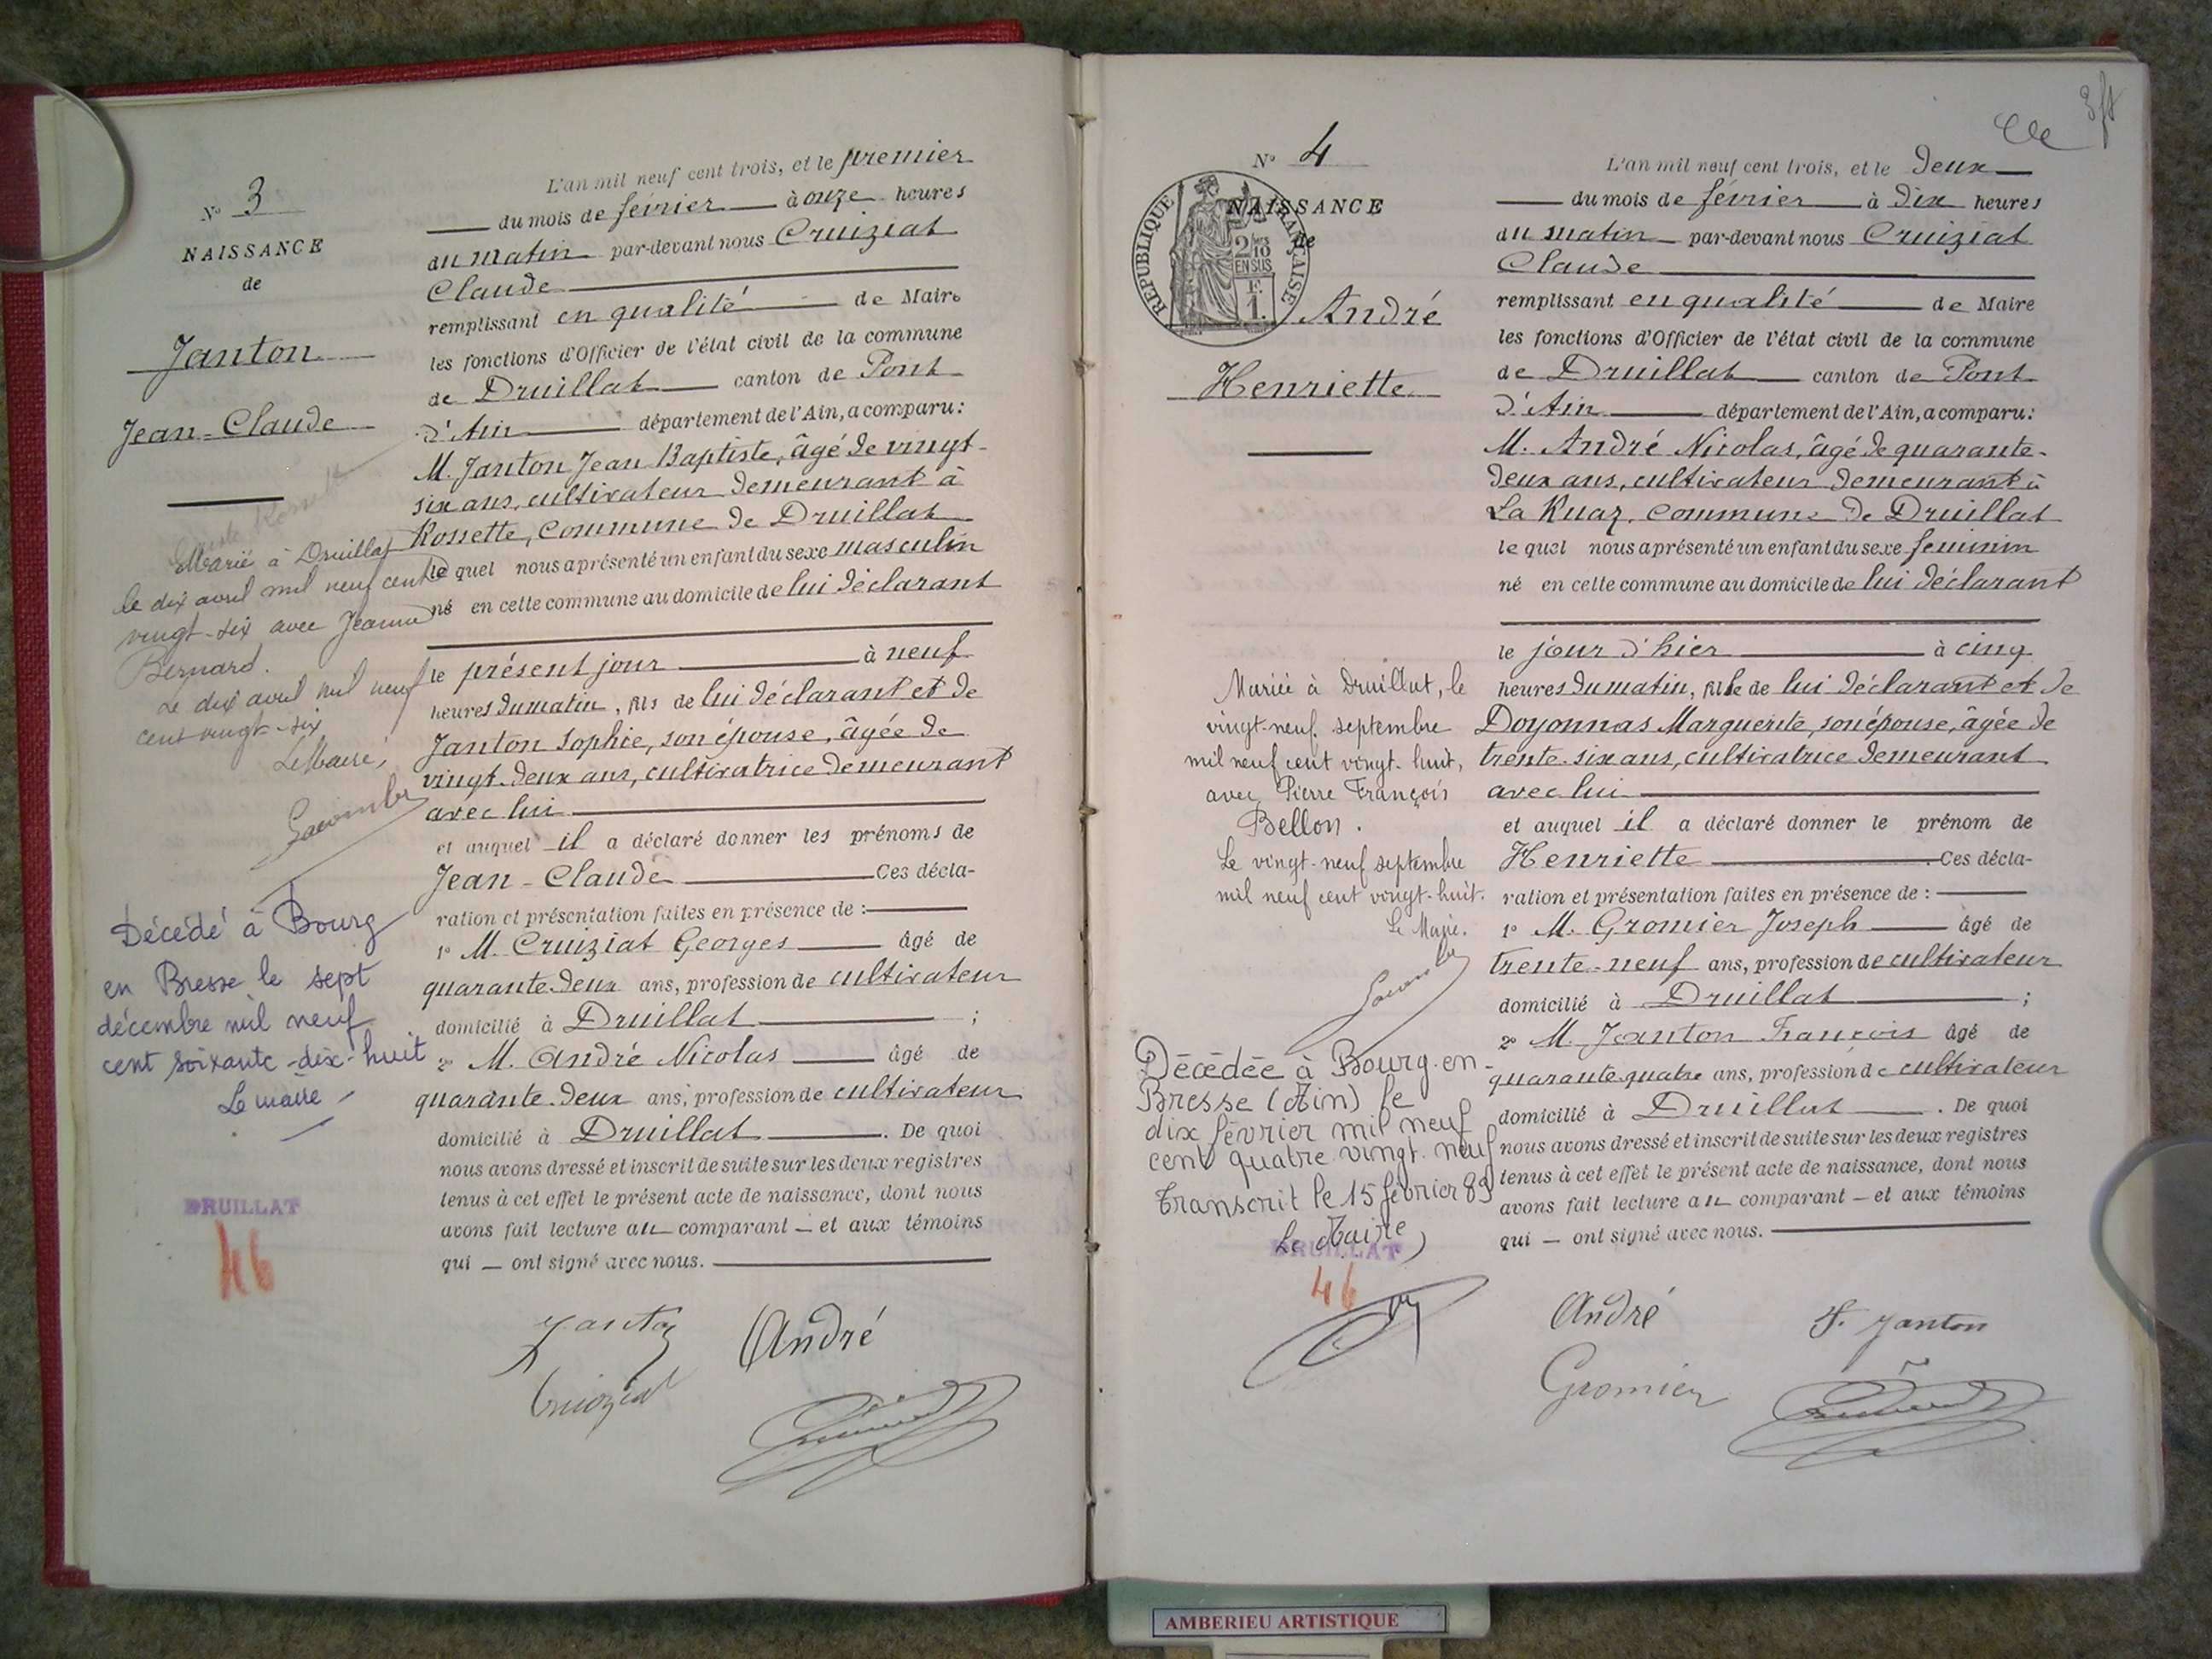 N° 3
NAISSANCE
de
Janton
Jean-Claude
Marié à Druillat
le dix avril mil neuf cent
vingt-six avec Jeanne
Bernard.
Le dix avril mil neuf
cent vingt-six
Le Maire,
Décédé à Bourg
en Bresse le sept
décembre mil neuf
cent soixante-dix-huit
Le maire
DRUILLAT
46
L'an mil neuf cent trois, et le premier
du mois de février à onze heures
du matin par-devant nous Cruiziat
Claude
remplissant en qualité de Maire
les fonctions d'Officier de l'état civil de la commune
de Druillat canton de Pont
d'Ain département de l'Ain, a comparu:
M. Janton Jean Baptiste, âgé de vingt-
six ans, cultivateur demeurant à
Rossette, commune de Druillat
le quel nous a présenté un enfant du sexe masculin
né en cette commune au domicile de lui déclarant
le présent jour à neuf
heures du matin, fils de lui déclarant et de
Janton Sophie, son épouse, âgée de
vingt-deux ans, cultivatrice demeurant
avec lui
et auquel il a déclaré donner les prénoms de
Jean-Claude Ces décla-
ration et présentation faites en présence de :
1° M. Cruiziat Georges âgé de
quarante-deux ans, profession de cultivateur
domicilié à Druillat ;
2° M. André Nicolas âgé de
quarante-deux ans, profession de cultivateur
domicilié à Druillat . De quoi
nous avons dressé et inscrit de suite sur les deux registres
tenus à cet effet le présent acte de naissance, dont nous
avons fait lecture au comparant — et aux témoins
qui — ont signé avec nous.
Janton André
Cruiziat
3 ft
N° 4
NAISSANCE
de
REPUBLIQUE FRANÇAISE
2/10
EN SUS
F.
1.
André
Henriette
Mariée à Druillat, le
vingt-neuf septembre
mil neuf cent vingt-huit,
avec Pierre François
Bellon.
Le vingt-neuf septembre
mil neuf cent vingt-huit.
Le Maire.
Décédée à Bourg-en-
Bresse (Ain) le
dix février mil neuf
cent quatre vingt-neuf
Transcrit le 15 février 89
Le Maire
DRUILLAT
46
L'an mil neuf cent trois, et le deux
du mois de février à dix heures
du matin par-devant nous Cruiziat
Claude
remplissant en qualité de Maire
les fonctions d'Officier de l'état civil de la commune
de Druillat canton de Pont
d'Ain département de l'Ain, a comparu:
M. André Nicolas, âgé de quarante-
deux ans, cultivateur demeurant à
La Ruaz, commune de Druillat
le quel nous a présenté un enfant du sexe feminin
né en cette commune au domicile de lui déclarant
le jour d'hier à cinq
heures du matin, fille de lui déclarant et de
Doyonnas Marguerite, son épouse, âgée de
trente-six ans, cultivatrice demeurant
avec lui
et auquel il a déclaré donner le prénom de
Henriette . Ces décla-
ration et présentation faites en présence de :
1° M. Gromier Joseph âgé de
trente-neuf ans, profession de cultivateur
domicilié à Druillat ;
2° M. Janton François âgé de
quarante-quatre ans, profession de cultivateur
domicilié à Druillat . De quoi
nous avons dressé et inscrit de suite sur les deux registres
tenus à cet effet le présent acte de naissance, dont nous
avons fait lecture au comparant — et aux témoins
qui — ont signé avec nous.
André F. Janton
Gromier
AMBERIEU ARTISTIQUE